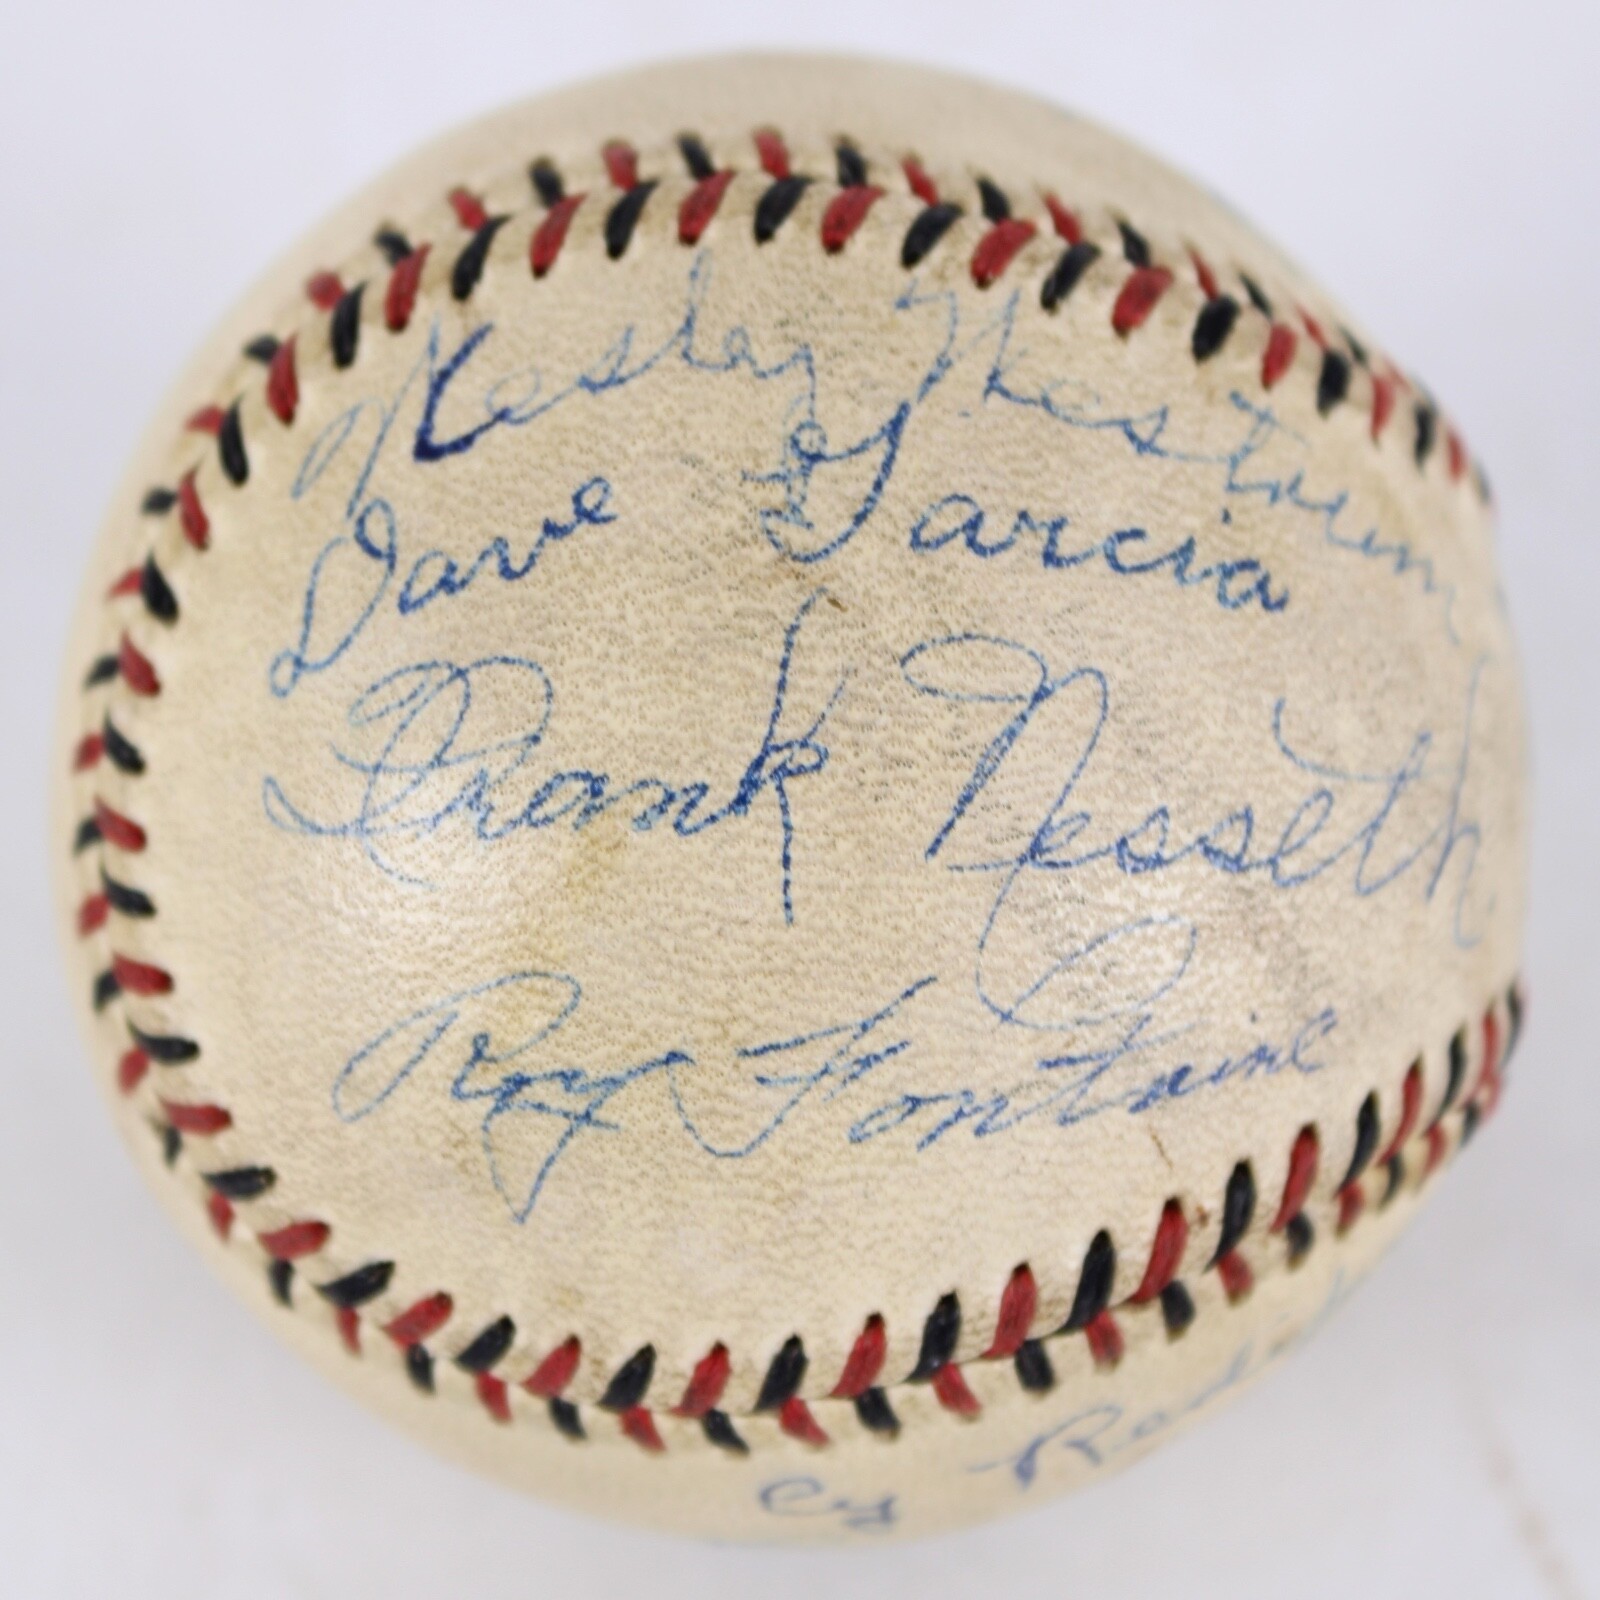 Wesley Westrum
Dave Garcia
Frank Nesseth
Roy Fontaine
Cy